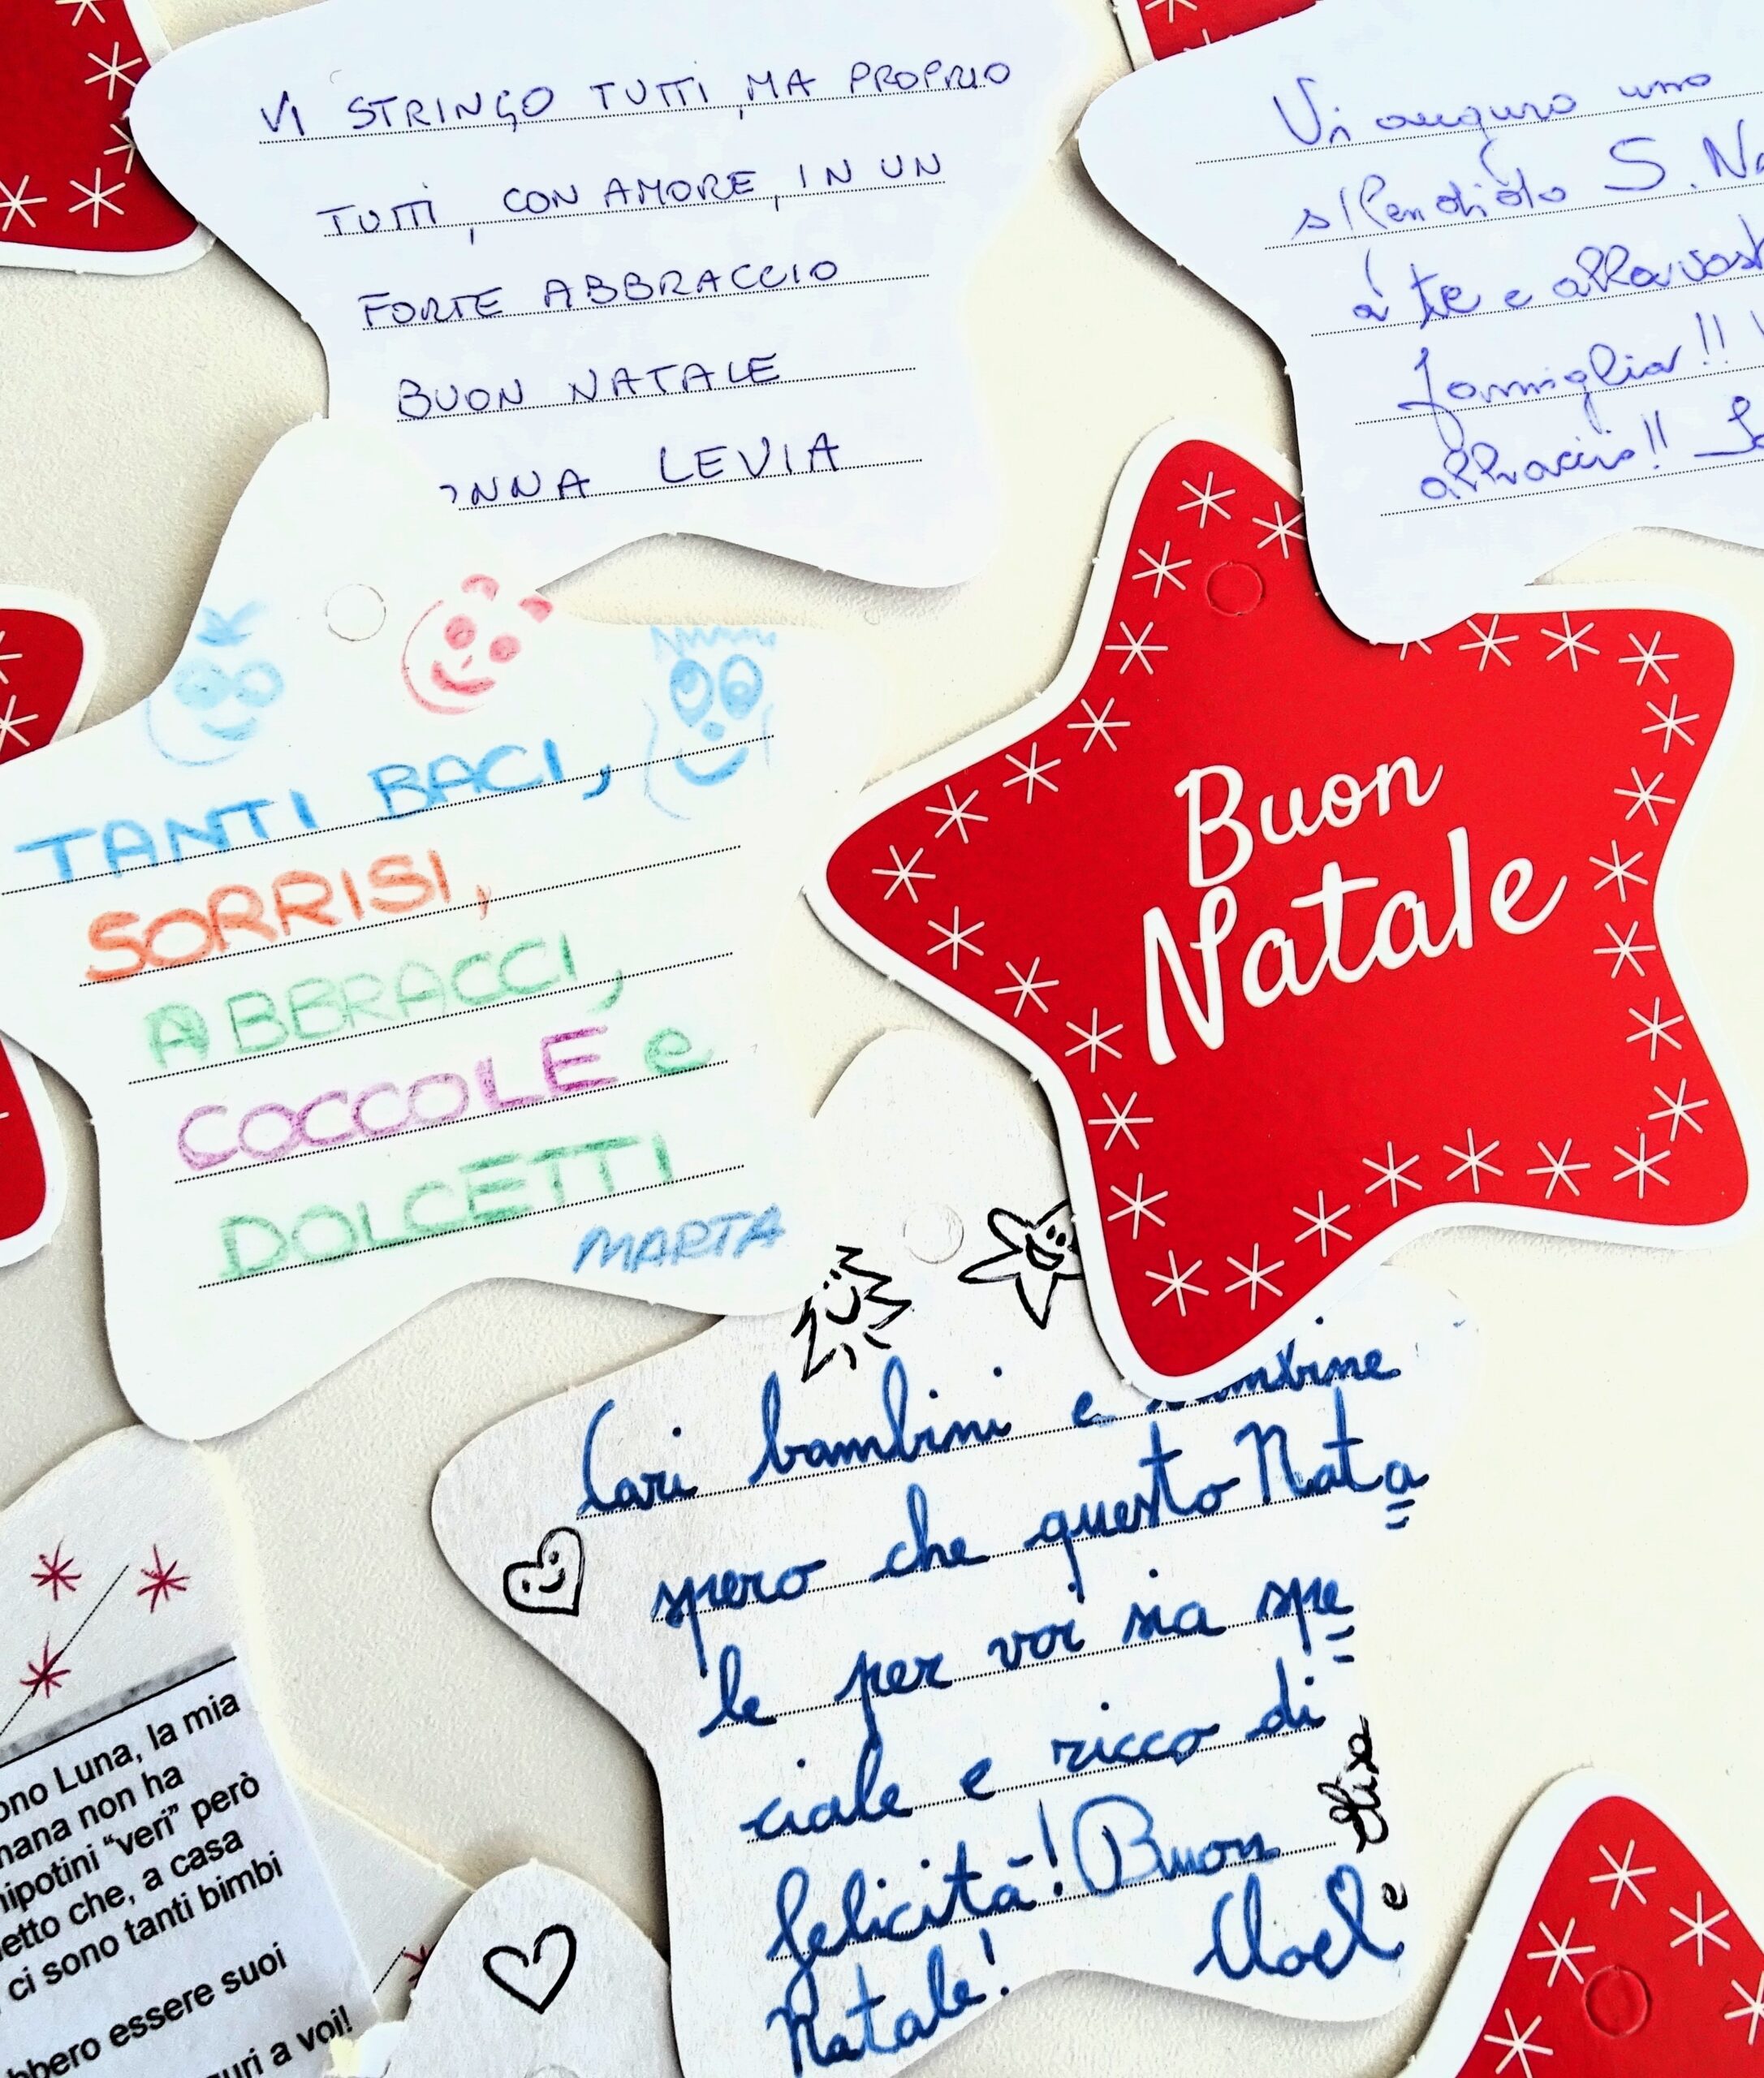 VI STRINGO TUTTI, MA PROPRIO
TUTTI, CON AMORE, IN UN
FORTE ABBRACCIO
BUON NATALE
LEVIA
Vi auguro uno
splendido S. Na
a te e alla vost
famiglia!!
abbraccio!!
TANTI BACI,
SORRISI,
ABBRACCI,
COCCOLE e
DOLCETTI
MARTA
Buon
Natale
Cari bambini e bambine
spero che questo Nata
le per voi sia spe
ciale e ricco di
felicità! Buon
Natale!
Elisa
e
ono Luna, la mia
mana non ha
nipotini "veri" però
etto che, a casa
ci sono tanti bimbi
bbero essere suoi
uri a voi!